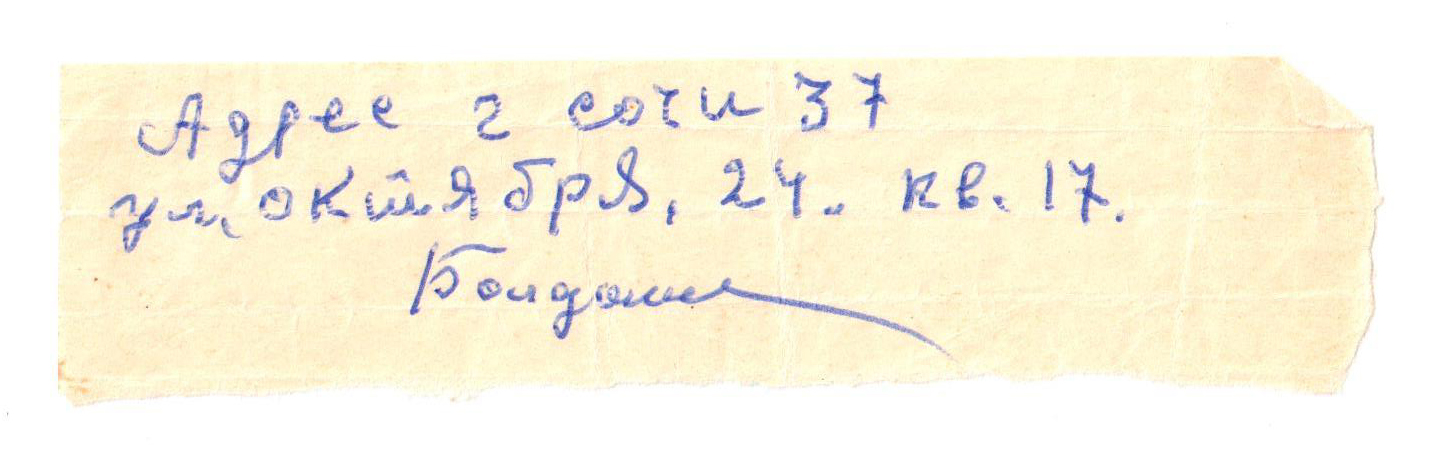 Адрес г сочи 37
ул, октября, 24. кв. 17.